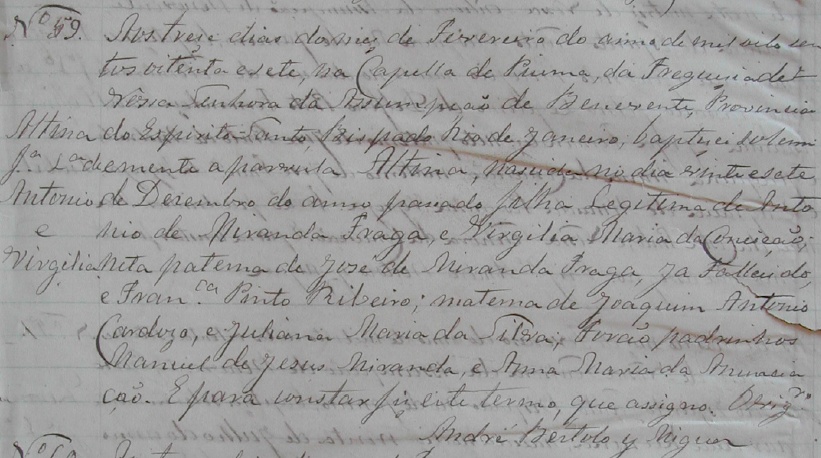 Nº 59. Aos treze dias do mez de Fevereiro do anno de mil oito cen
tos oitenta e sete, na Capella de Piuma, da Freguezia de
Nossa Senhora da Assumpção de Benevente, Provincia
Altina do Espirito-Santo Bispado Rio de Janeiro, baptizei solem
Fª Lª de emente a parvula Altina, nascida no dia vinte e sete
Antonio de Dezembro do anno passado filha legitima de Anto
e nio de Miranda Fraga, e Virgilia Maria da Conceição;
Virgilia Neta paterna de José de Miranda Fraga, ja fallecido,
e Fran.ca Pinto Ribeiro; materna de Joaquim Antonio
Cardozo, e Juliana Maria da Silva; Forão padrinhos
Manuel de Jesus Miranda, e Anna Maria da Anuncia
ção. E para constar fiz este termo, que assigno.
André Bertolo y
Nº 60